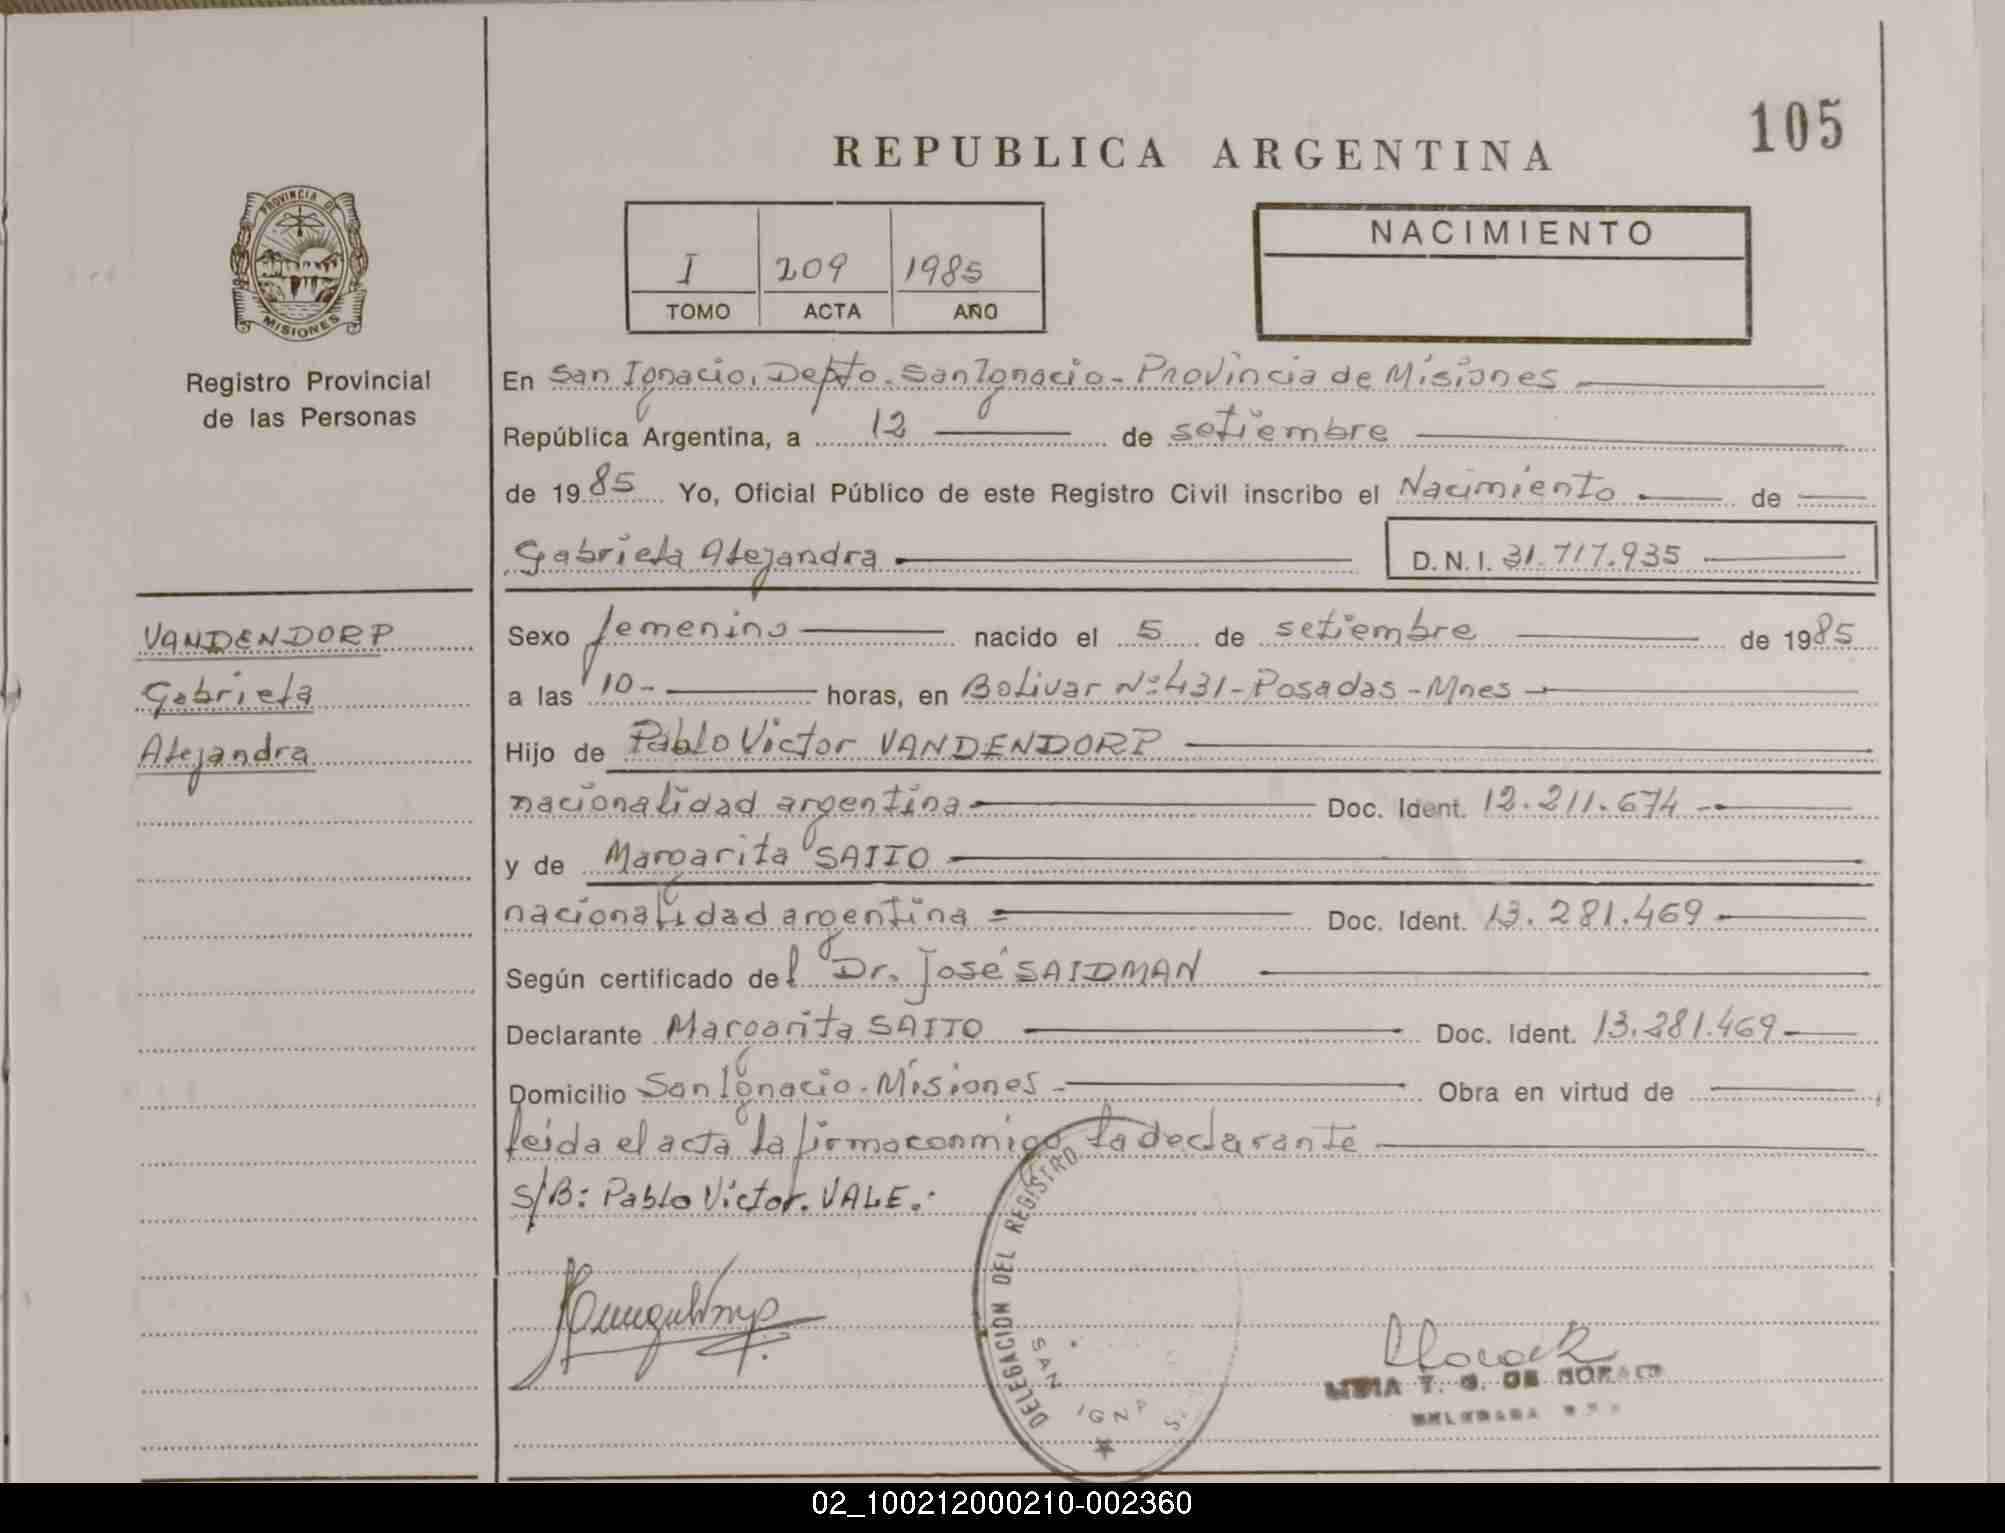 105
REPUBLICA ARGENTINA
PROVINCIA DE
MISIONES
Registro Provincial
de las Personas
I 209 1985
TOMO ACTA AÑO
NACIMIENTO
En San Ignacio, Depto. San Ignacio - Provincia de Misiones
República Argentina, a 12 de setiembre
de 1985 Yo, Oficial Público de este Registro Civil inscribo el Nacimiento de
Gabriela Alejandra D.N.I. 31.717.935
VANDENDORP
Gabriela
Alejandra
Sexo femenino nacido el 5 de setiembre de 1985
a las 10- horas, en Bolivar Nº 431 - Posadas - Mnes
Hijo de Pablo Victor VANDENDORP
nacionalidad argentina Doc. Ident. 12.211.674
y de Margarita SAITO
nacionalidad argentina Doc. Ident. 13.281.469
Según certificado del Dr. José SAIDMAN
Declarante Margarita SAITO Doc. Ident. 13.281.469
Domicilio San Ignacio - Misiones - Obra en virtud de
leida el acta la firma conmigo, la declarante
S/B: Pablo Victor. VALE.:
DELEGACION DEL REGISTRO
SAN IGNA
T. G. DE
02_100212000210-002360